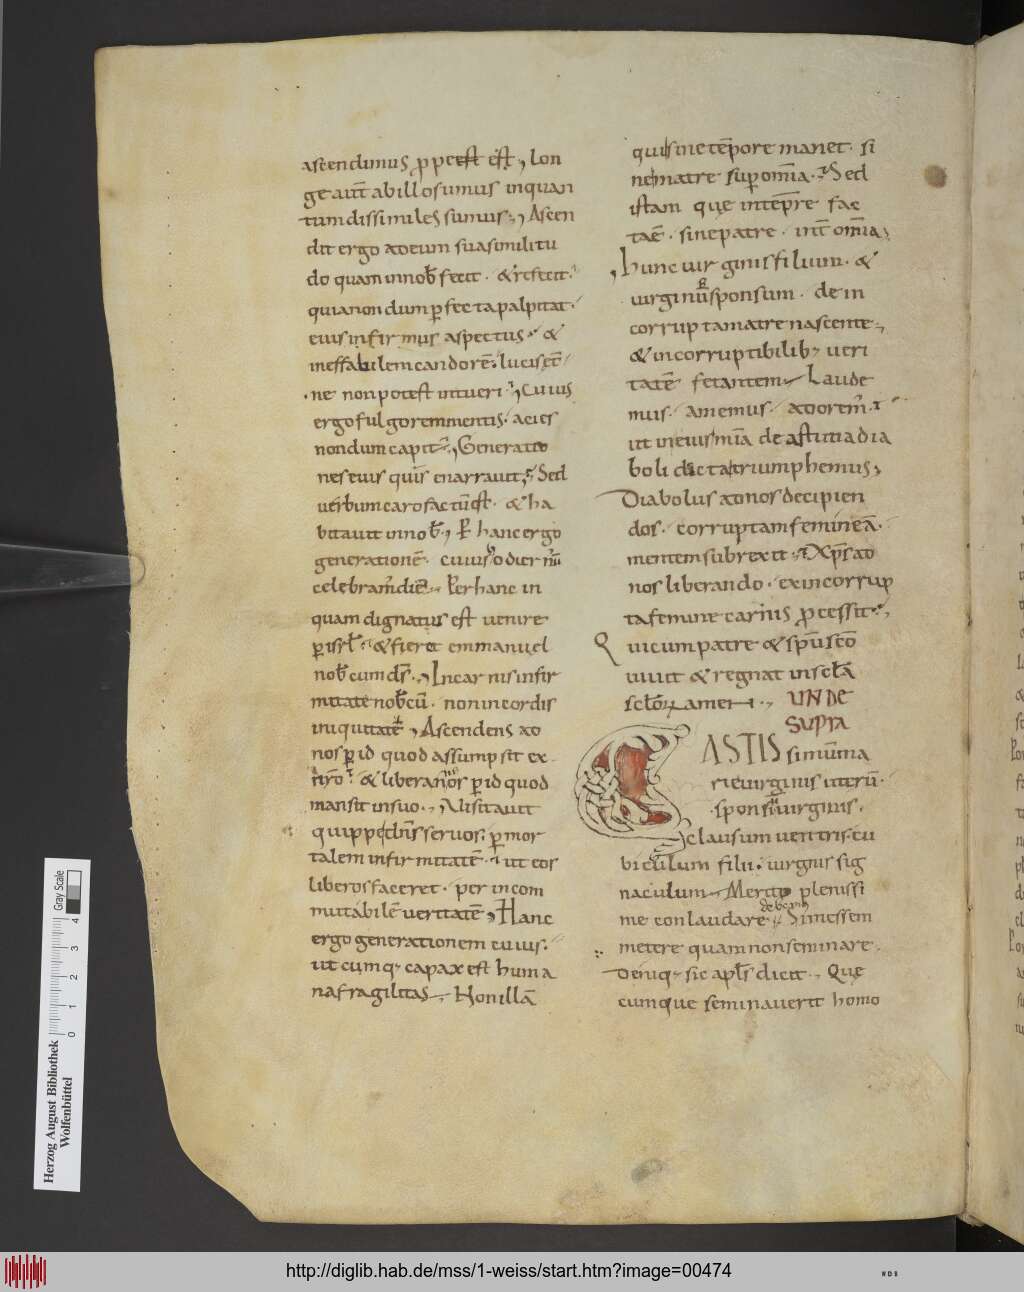 ascendimus ꝓpeest ē̃st, lon
ge aut̄ abillosumus inquan
tumdissimiles sumus; Ascen
dit ergo adeum suasimilitu
do quam innob̄ fecit. & refecit.
quianondum ꝑfecta palpitat.
eius infirmus aspectus. &
ineffabilem candorē lucis ēt̄
ne non potest intueri, Cuius
ergo fulgorem mentis. acies
nondum capit̄, Generatio
nes eius quis enarravit, Sed
verbum caro factū ēst. & ha
bitavit innob̄. Et hanc ergo
generationē. cuius odiernū
celebram̄ diē. Per hanc in
quam dignatus est venire
ꝑ isrl̄. & fieret emmanuel
nob̄ cum ds̄. Incarnis infir
mitate nob̄cū. non incordis
iniquitatē, Ascendens ad
nos ꝑ id quod assumpsit ex
nr̄o. & liberans nos ꝑ id quod
mansit insuo. Visitavit
quippe dn̄s servos. ꝑ mor
talem infirmitatē. ut eos
liberos faceret. per incom
mutabilē veritatē, Hanc
ergo generationem cuius.
utcumq; capax est huma
na fragilitas, Non illā
qui sine tēpore manet. si
ne matre suꝑ omīa. Sed
istam quę intēpore fac
taē. sine patre. int̄ omīa,
hunc virginis filium. &
virginū sponsum. de in
corrupta matre nascente,
& incorruptibilib; veri
tatē fetantem, Laude
mus. amemus. adorem̄.
ut in eius mīa de astutia dia
boli dicta triumphemus,
Diabolus ad nos decipien
dos. corruptam feminēā.
mentem subrexit. Xp̄s ad
nos liberando. ex incorrup
ta femine carnis ꝓcessit,
Qui cum patre & sp̄u sc̄o
vivit & regnat in sc̄la
sc̄lorꝝ amen., UNDE
SUPRA
CASTISsimum ma
rie virginis uterū.
sponsū virginis.
clausum ventris cu
biculum filii. virginis sig
naculum. Merito plenissi
me conlaudare debeam̄ Si messem
metere quam non seminare.
Deniq; sic apl̄s dicit., Quę
cumque seminaverit homo
Herzog August Bibliothek
Wolfenbüttel
Gray Scale
0 1 2 3 4
http://diglib.hab.de/mss/1-weiss/start.htm?image=00474